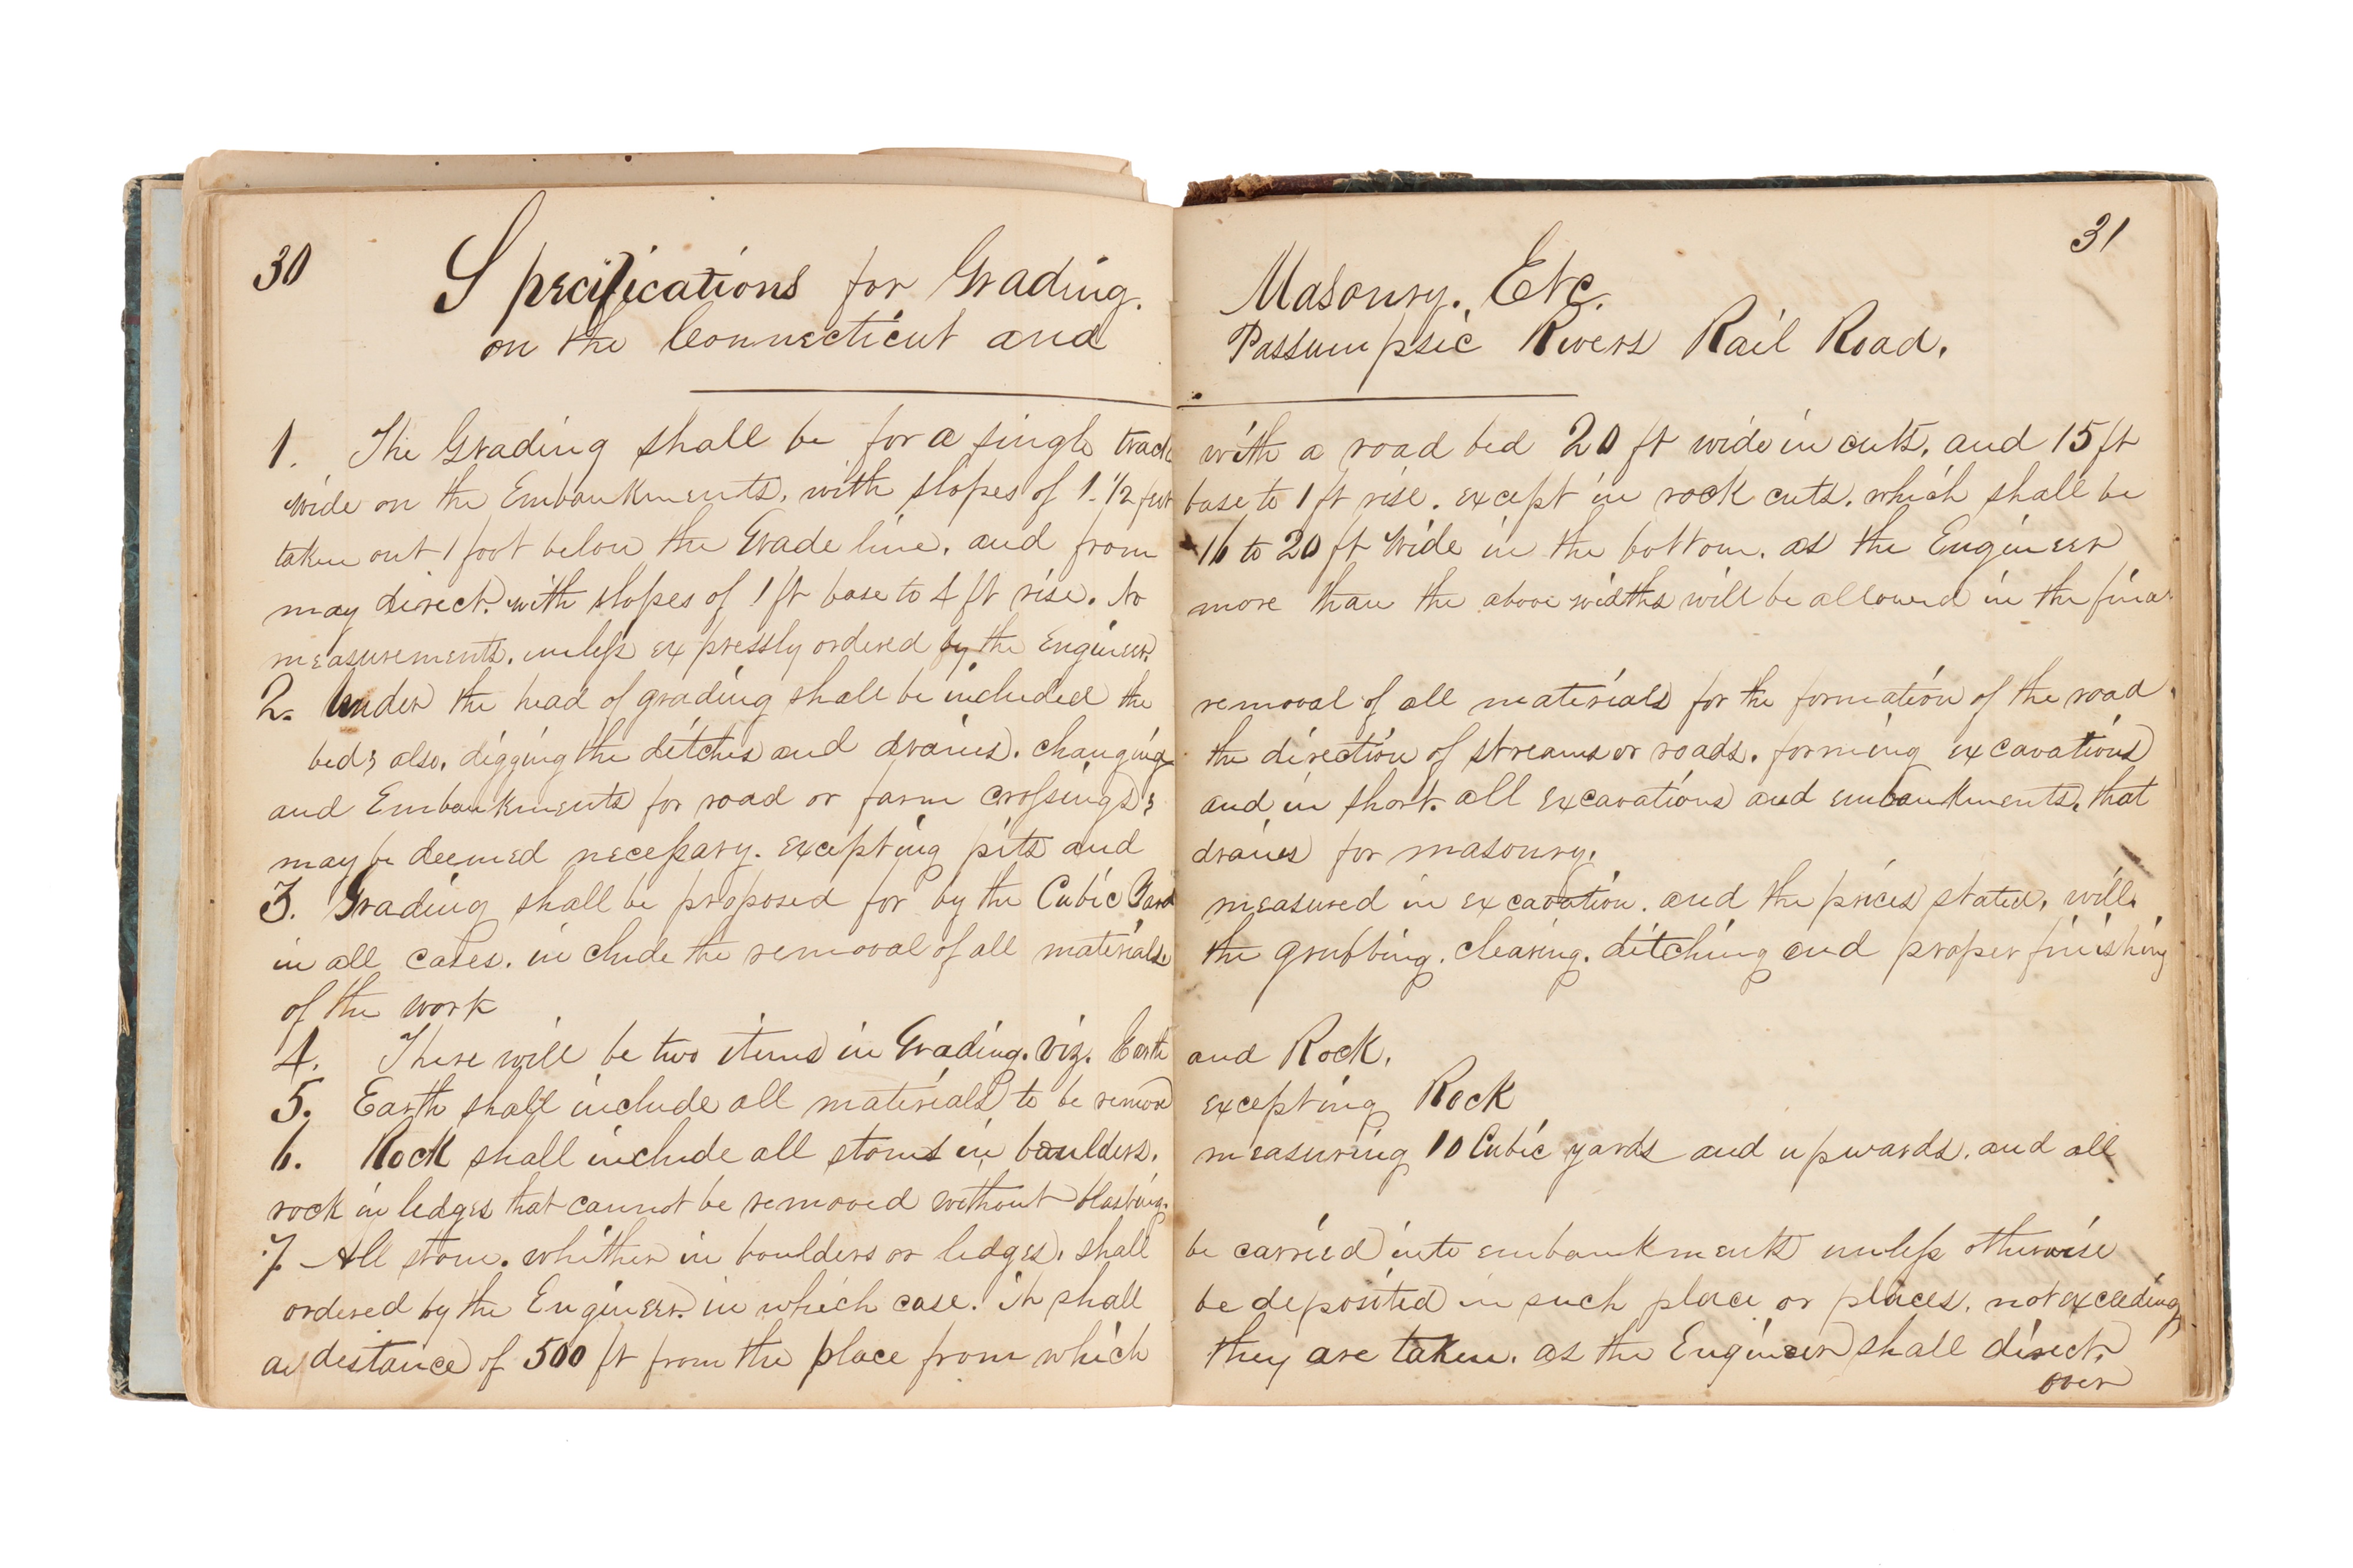 30 31
Specifications for Grading. Masonry. Etc.
on the Connecticut and Passumpsic Rivers Rail Road.
1. The Grading shall be for a single track with a road bed 20 ft wide in cuts, and 15 ft
wide on the Embankments, with slopes of 1.1/2 feet base to 1 ft rise. except in rock cuts, which shall be
taken out 1 foot below the Grade line, and from 16 to 20 ft wide in the bottom, as the Engineer
may direct, with slopes of 1 ft base to 4 ft rise. No more than the above widths will be allowed in the final
measurements, unless expressly ordered by the Engineer.
2. Under the head of grading shall be included the removal of all materials for the formation of the road
bed; also, digging the ditches and drains. changing the direction of streams or roads. forming excavations
and Embankments for road or farm crossings; and in short. all excavations and embankments, that
may be deemed necessary. excepting pits and drains for masonry.
3. Grading shall be proposed for by the Cubic Yard measured in excavation. and the prices stated, will,
in all cases. include the removal of all materials. the grubbing. clearing. ditching and proper finishing
of the work
4. There will be two items in Grading. viz. Earth and Rock.
5. Earth shall include all materials to be removed excepting Rock
6. Rock shall include all stones in boulders. measuring 10 Cubic yards and upwards. and all
rock in ledges that cannot be removed without blasting.
7. All stone. whither in boulders or ledges, shall be carried into embankments unless otherwise
ordered by the Engineer. in which case. it shall be deposited in such place or places, not exceeding
a distance of 500 ft from the place from which they are taken. as the Engineer shall direct.
over